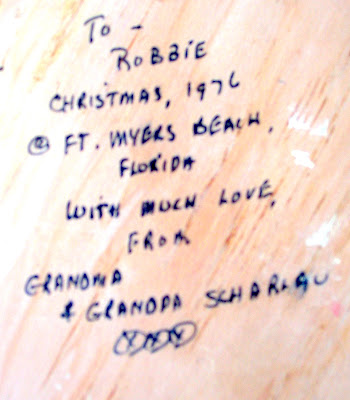 To -
ROBBIE
CHRISTMAS, 1976
@ FT. MYERS BEACH,
FLORIDA
WITH MUCH LOVE,
FROM
GRANDMA
& GRANDPA SCHARLAU